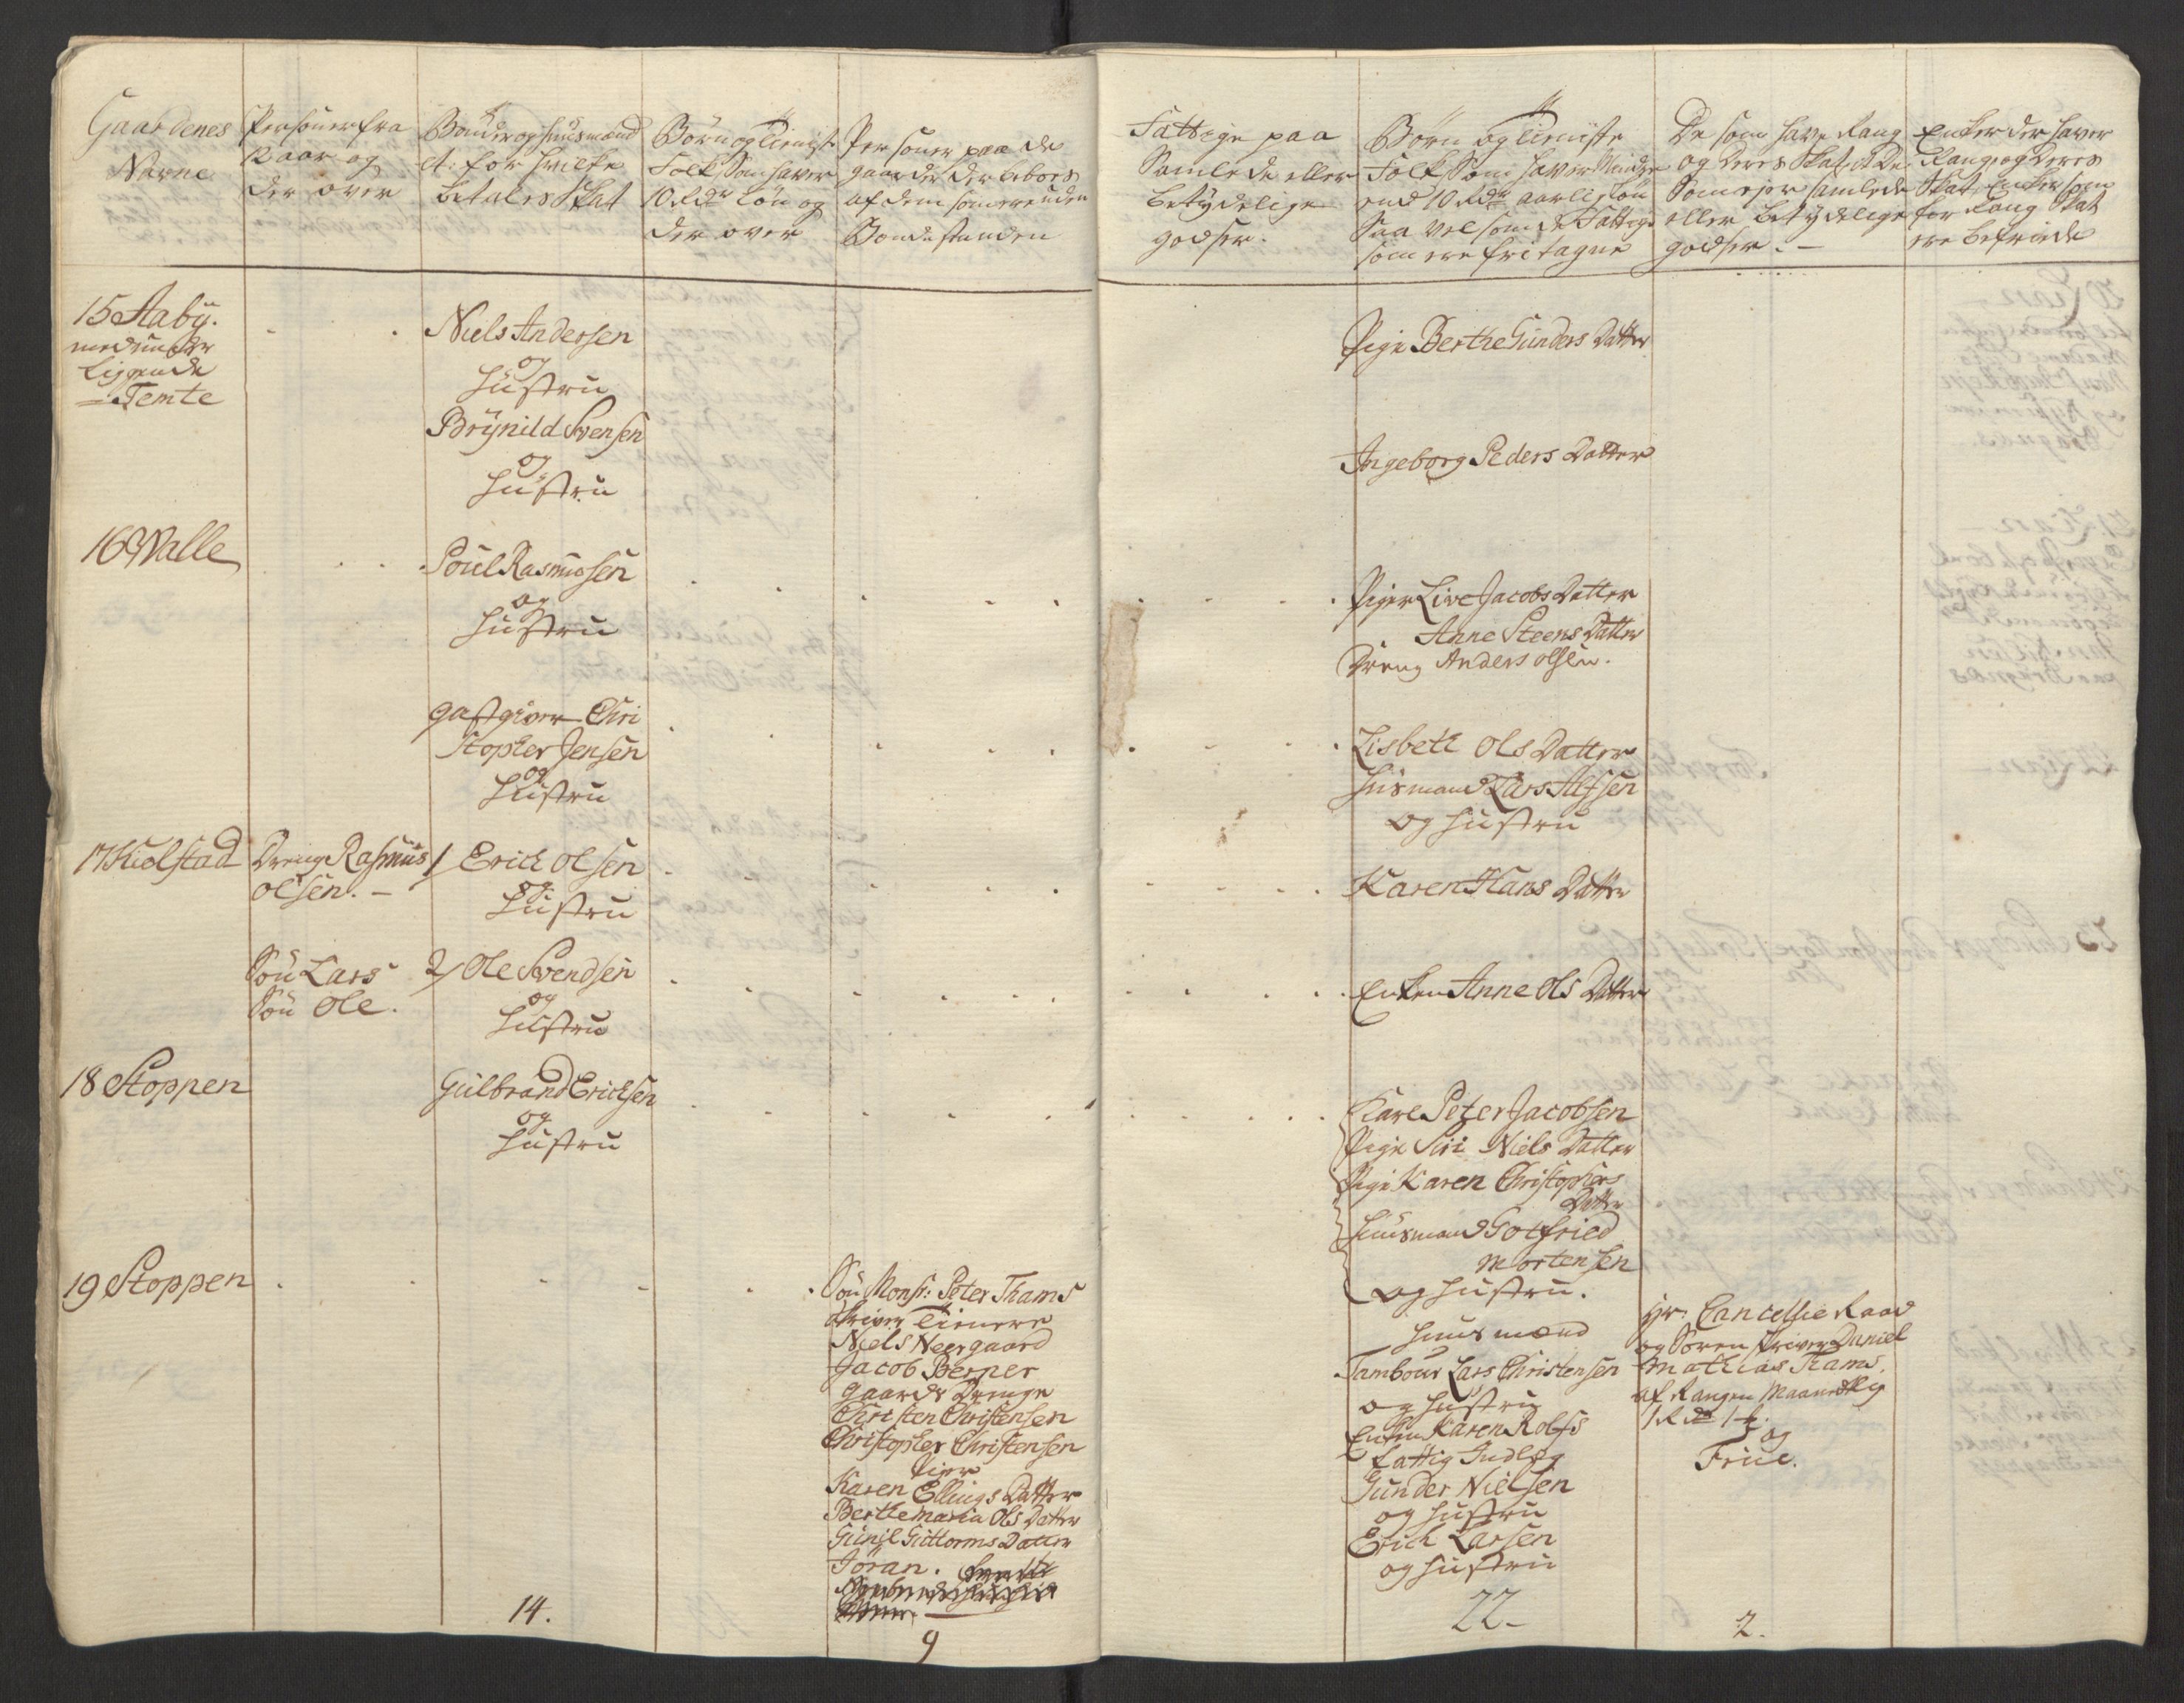 Gaardenes
Navne
Personer fra
12 aar og
der over
Bönder og Huusmænd
et: for hvilke
betales Skat
Börn og tieniste
Folk som haver
10 Rdr Lön og
der over
Personer paa de
gaarder der beboes
af dem som ere uden
Bondestanden
Fattige paa
Samlede eller
betydelige
godser.
Börn og tieniste
Folk som haver Mindre
end 10 Rdr aarlig Lön
Saa vel som de Fattige
som ere fritagne
De som have Rang
og Deres Skat, et De
som ejer samlede
eller betydelige
godser. -
Enker der haver
Rang og Deres
Skat, Enker som
for Rang Skat
ere befriede
15 Aabÿ.
med under
Liggende
Temte
Niels Andersen
og
Hustru
Pige Berthe Gunders Datter
Brÿnild Svensen
og
Hustru
Ingeborg Peders Datter
16 Walle
Poul Rasmusen
og
Hustru
Piger Live Jacobs Datter
Anne Steens Datter
Dreng Anders Olsen.
gastgiver Chri
stopher Jensen
og
Hustru
Lisbeth Ols Datter
Husmand Lars Alfsen
og Hustru
17 Kiolstad
Dreng Rasmus
Olsen. -
1/ Erich Olsen
og
Hustru
Karen Hans Datter
Sön Lars
Sön Ole.
2/ Ole Svendsen
og
Hustru
Enken Anne Ols Datter
18 Stoppen
Gulbrand Erichsen
og
Hustru
Karl Peter Jacobsen
Pige Siri Niels Datter
Pige Karen Christophers
Datter
Huusmand Gotfried
Mortensen
og Hustru.
19 Stoppen
Sön Monsr: Peter Thams
Skriver Tienere
Niels Neergaard
Jacob Berner
gaards Drenge
Christen Christensen
Christopher Christensen
Piger
Karen Ellings Datter
Berthe Maria Ols Datter
Gunil Guttorms Datter
Jöran.
Huusmænd
Tambour Lars Christensen
og Hustru
Enken Karen Rolfs
fattig Indlog
Gunder Nielsen
og Hustru
Erich Larsen
og Hustru
Hr. Cancellie Raad
og Soren Skriver Daniel
Mathias Thams.
af Rangen Maanedlig
1 Rdr
og
Frue.
14.
9
22-
2.